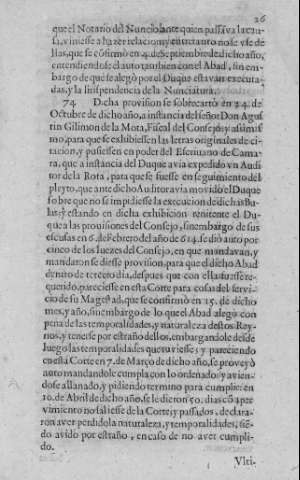 26
que el Notario del Nuncio ante quien passava la cau-
sa, viniesse a hazer relacion, y en otro auto no se vse de
llas, que se cõfirmò en 4. de Septiembre de dicho año,
entendiendose el auto tambien con el Abad, sin em-
bargo de que se alegò por el Duque estavan executa-
das, y la Iinpendencia de la Nunciatura.
74. Dicha provision se sobrecartò en 24. de
Octubre de dicho año, a instancia del señor Don Agus
tin Gilimon de la Mota, Fiscal del Consejo, y assimis
mo, para que se exhibiessen las letras originales de ci-
tacion, y pusiessen en poder del Escrivano de Cama-
ra, que a instancia del Duque avia expedido vn Audi
tor de la Rota, para que se fuesse en seguimiento del
pleyto, que ante dicho Auditor avia movido el Duque
sobre que no se impidiesse la execucion de dichas Bu-
las; y estando en dicha exhibicion renitente el Du-
que a las provisiones del Consejo, sin embargo de sus
escusas en 6. de Febrero del año de 614. se diò auto por
cinco de los Juezes del Consejo, en que mandavan, y
mandaron se diesse provision, para que el dicho Abad
dentro de tercero dia, despues que con ella fuesse re-
querido, pareciesse en esta Corte para cosas del servi-
cio de su Magestad, que se confirmò en 15. de dicho
mes, y año, sin embargo de lo que el Abad alegò con
pena de las temporalidades, y naturaleza destos Rey-
nos, y tenerse por estraño dellos, embargandole desde
luego las temporalidades que tuviesse; y pareciendo
en esta Corte en 7. de Março de dicho año, se proveyò
auto mandandole cumpla con lo ordenado: y avien-
dose allanado, y pidiendo termino para cumplir: en
10. de Abril de dicho año, se le dieron 50. dias cõ aper
vimiento no saliesse de la Corte; y passados, declara-
ron aver perdido la naturaleza, y temporalidades, siẽ-
do avido por estraño, en caso de no aver cumpli-
do.
Vlti-